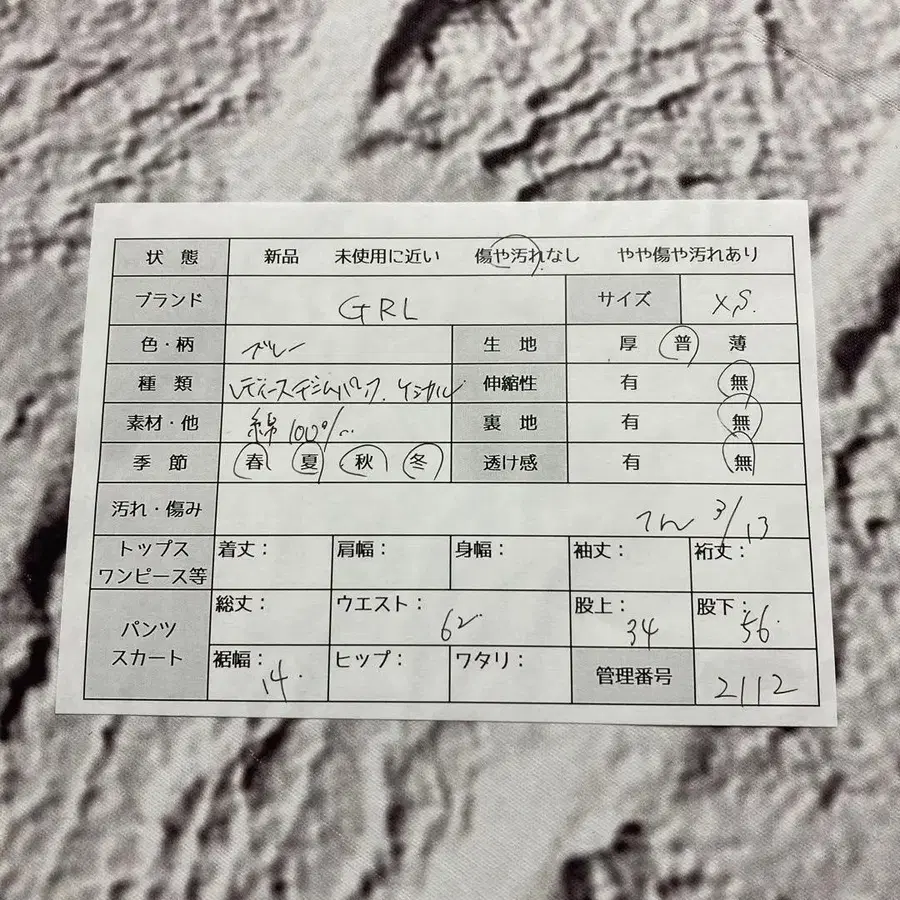 状態 新品 未使用に近い 傷や汚れなし やや傷や汚れあり
ブランド GRL サイズ XS.
色・柄 ブルー 生地 厚 普 薄
種類 レディースデニムパンツ. ケミカル 伸縮性 有 無
素材・他 綿 100% 裏地 有 無
季節 春 夏 秋 冬 透け感 有 無
汚れ・傷み 3/13
トップス ワンピース等 着丈: 肩幅: 身幅: 袖丈: 裄丈:
パンツ スカート 総丈: ウエスト: 62 股上: 34 股下: 56
裾幅: 14 ヒップ: ワタリ: 管理番号 2112